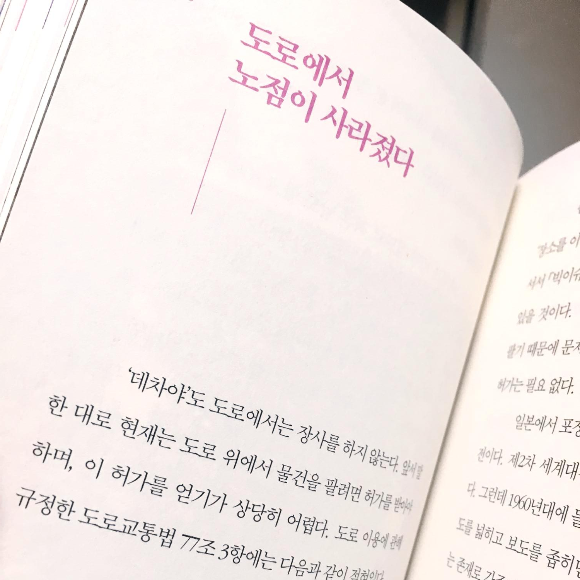 도로에서
노점이 사라졌다
'데차야'도 도로에서는 장사를 하지 않는다. 앞서 말
한 대로 현재는 도로 위에서 물건을 팔려면 허가를 받아야
하며, 이 허가를 얻기가 상당히 어렵다. 도로 이용에 관해
규정한 도로교통법 77조 3항에는 다음과 같이 적혀있다.
장소를 이
서서 『빅이슈
있을 것이다.
팔기 때문에 문제
허가는 필요 없다.
일본에서 포장
전이다. 제2차 세계대
다. 그런데 1960년대에 들
도를 넓히고 보도를 좁히면
는 존재로